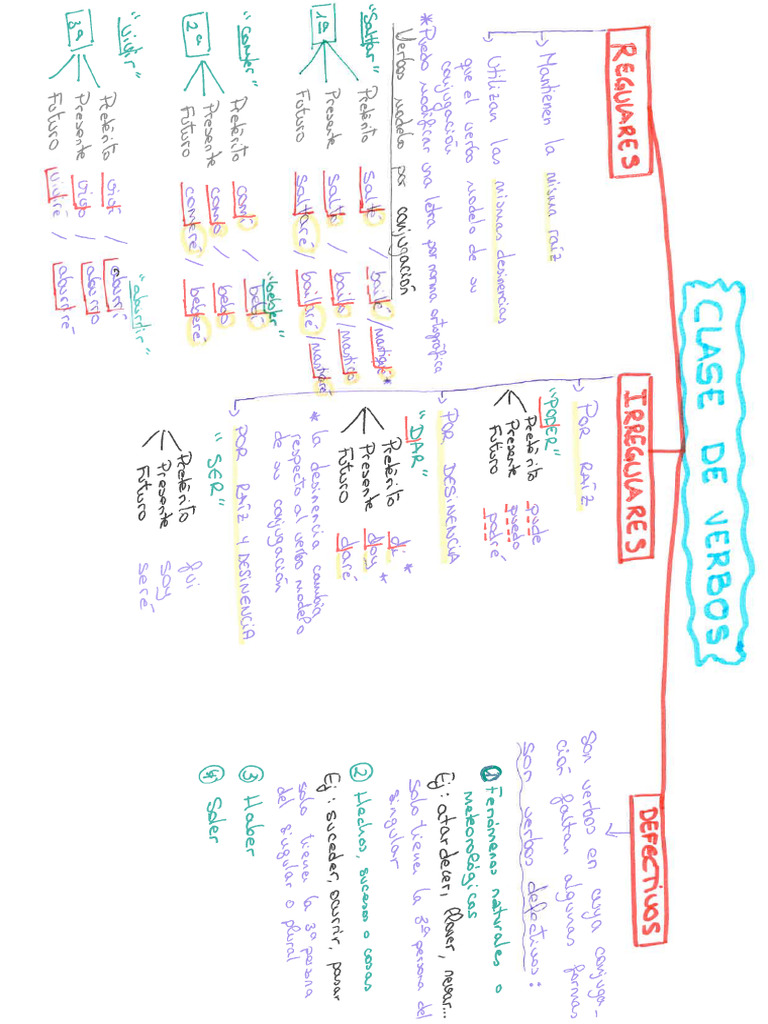 CLASE DE VERBOS
REGULARES
Mantienen la misma raíz
Utilizan las mismas desinencias
que el verbo modelo de su
conjugación
* Puedo modificar una letra por norma ortográfica
Verbos modelo por conjugación
"Saltar"
1ª
Pretérito salté / bailé / mastiqué *
Presente salto / bailo / mastico
Futuro saltaré / bailaré /
"comer"
"beber"
2ª
Pretérito comí / bebí
Presente como / bebo
Futuro comeré / beberé
"vivir"
"aburrir"
3ª
Pretérito viví / aburrí
Presente vivo / aburro
Futuro viviré / aburriré
IRREGULARES
POR RAÍZ
"PODER"
Pretérito pude
Presente puedo
Futuro podré
POR DESINENCIA
"DAR"
Pretérito di *
Presente doy *
Futuro daré
* la desinencia cambia
respecto al verbo modelo
de su conjugación
POR RAÍZ Y DESINENCIA
"SER"
Pretérito fui
Presente soy
Futuro seré
DEFECTIVOS
Son verbos en cuya conjuga-
ción faltan algunas formas
Son verbos defectivos:
1 Fenómenos naturales o
meteorológicas
Ej: atardecer, llover, nevar...
Solo tienen la 3ª persona del
singular
2 Hechos, sucesos o cosas
Ej: suceder, ocurrir, pasar
solo tienen la 3ª persona
del singular o plural
3 Haber
4 Soler